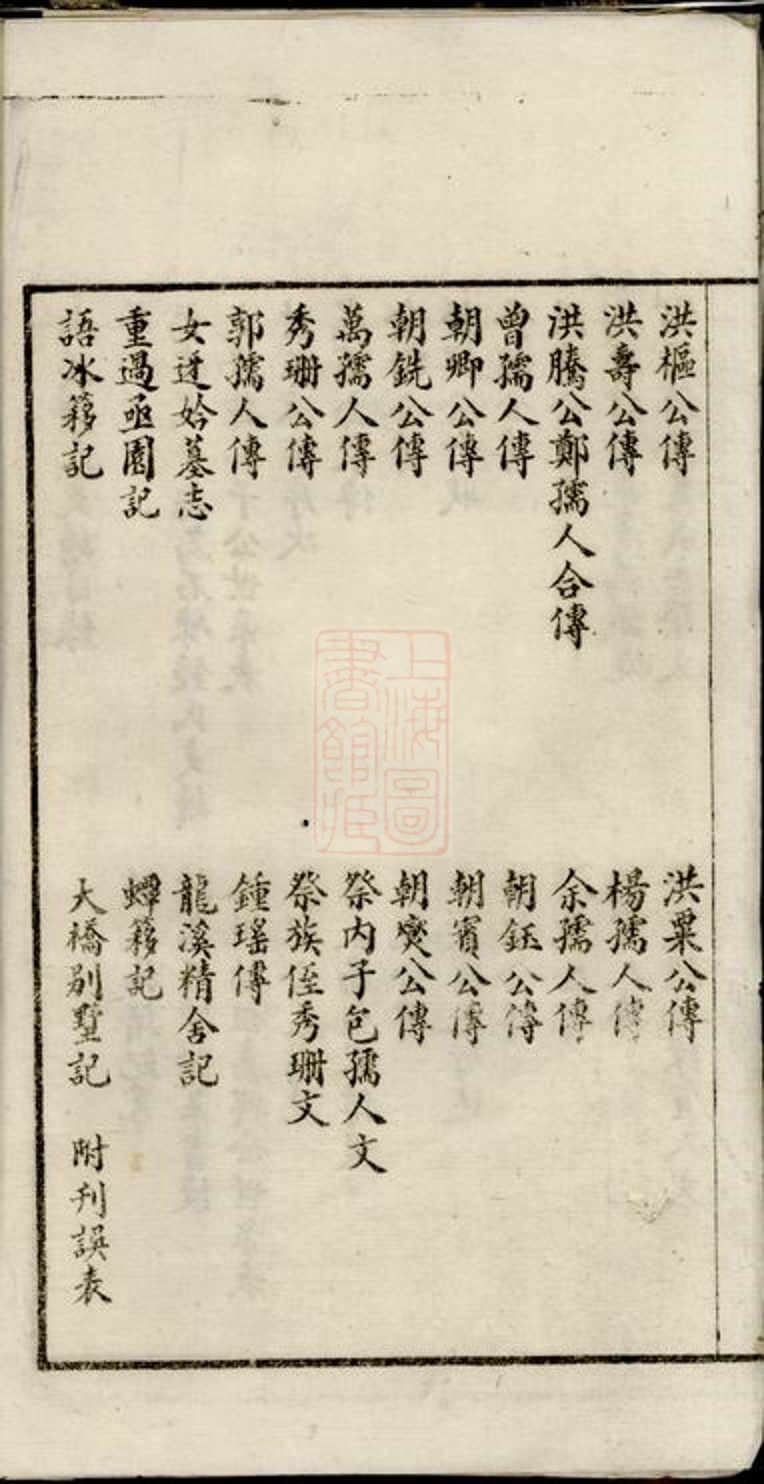 洪樞公傳　洪粟公傳
洪壽公傳　楊孺人傳
洪騰公鄭孺人合傳　余孺人傳
曾孺人傳　朝鈺公傳
朝卿公傳　朝賓公傳
朝銑公傳　朝爕公傳
萬孺人傳　祭内子包孺人文
秀珊公傳　祭族侄秀珊文
郭孺人傳　鍾瑤傳
女迓姈墓志　龍溪精舍記
重過亟園記　蟫簃記
語冰簃記　大橋別墅記　附刊誤表
上海圖書館